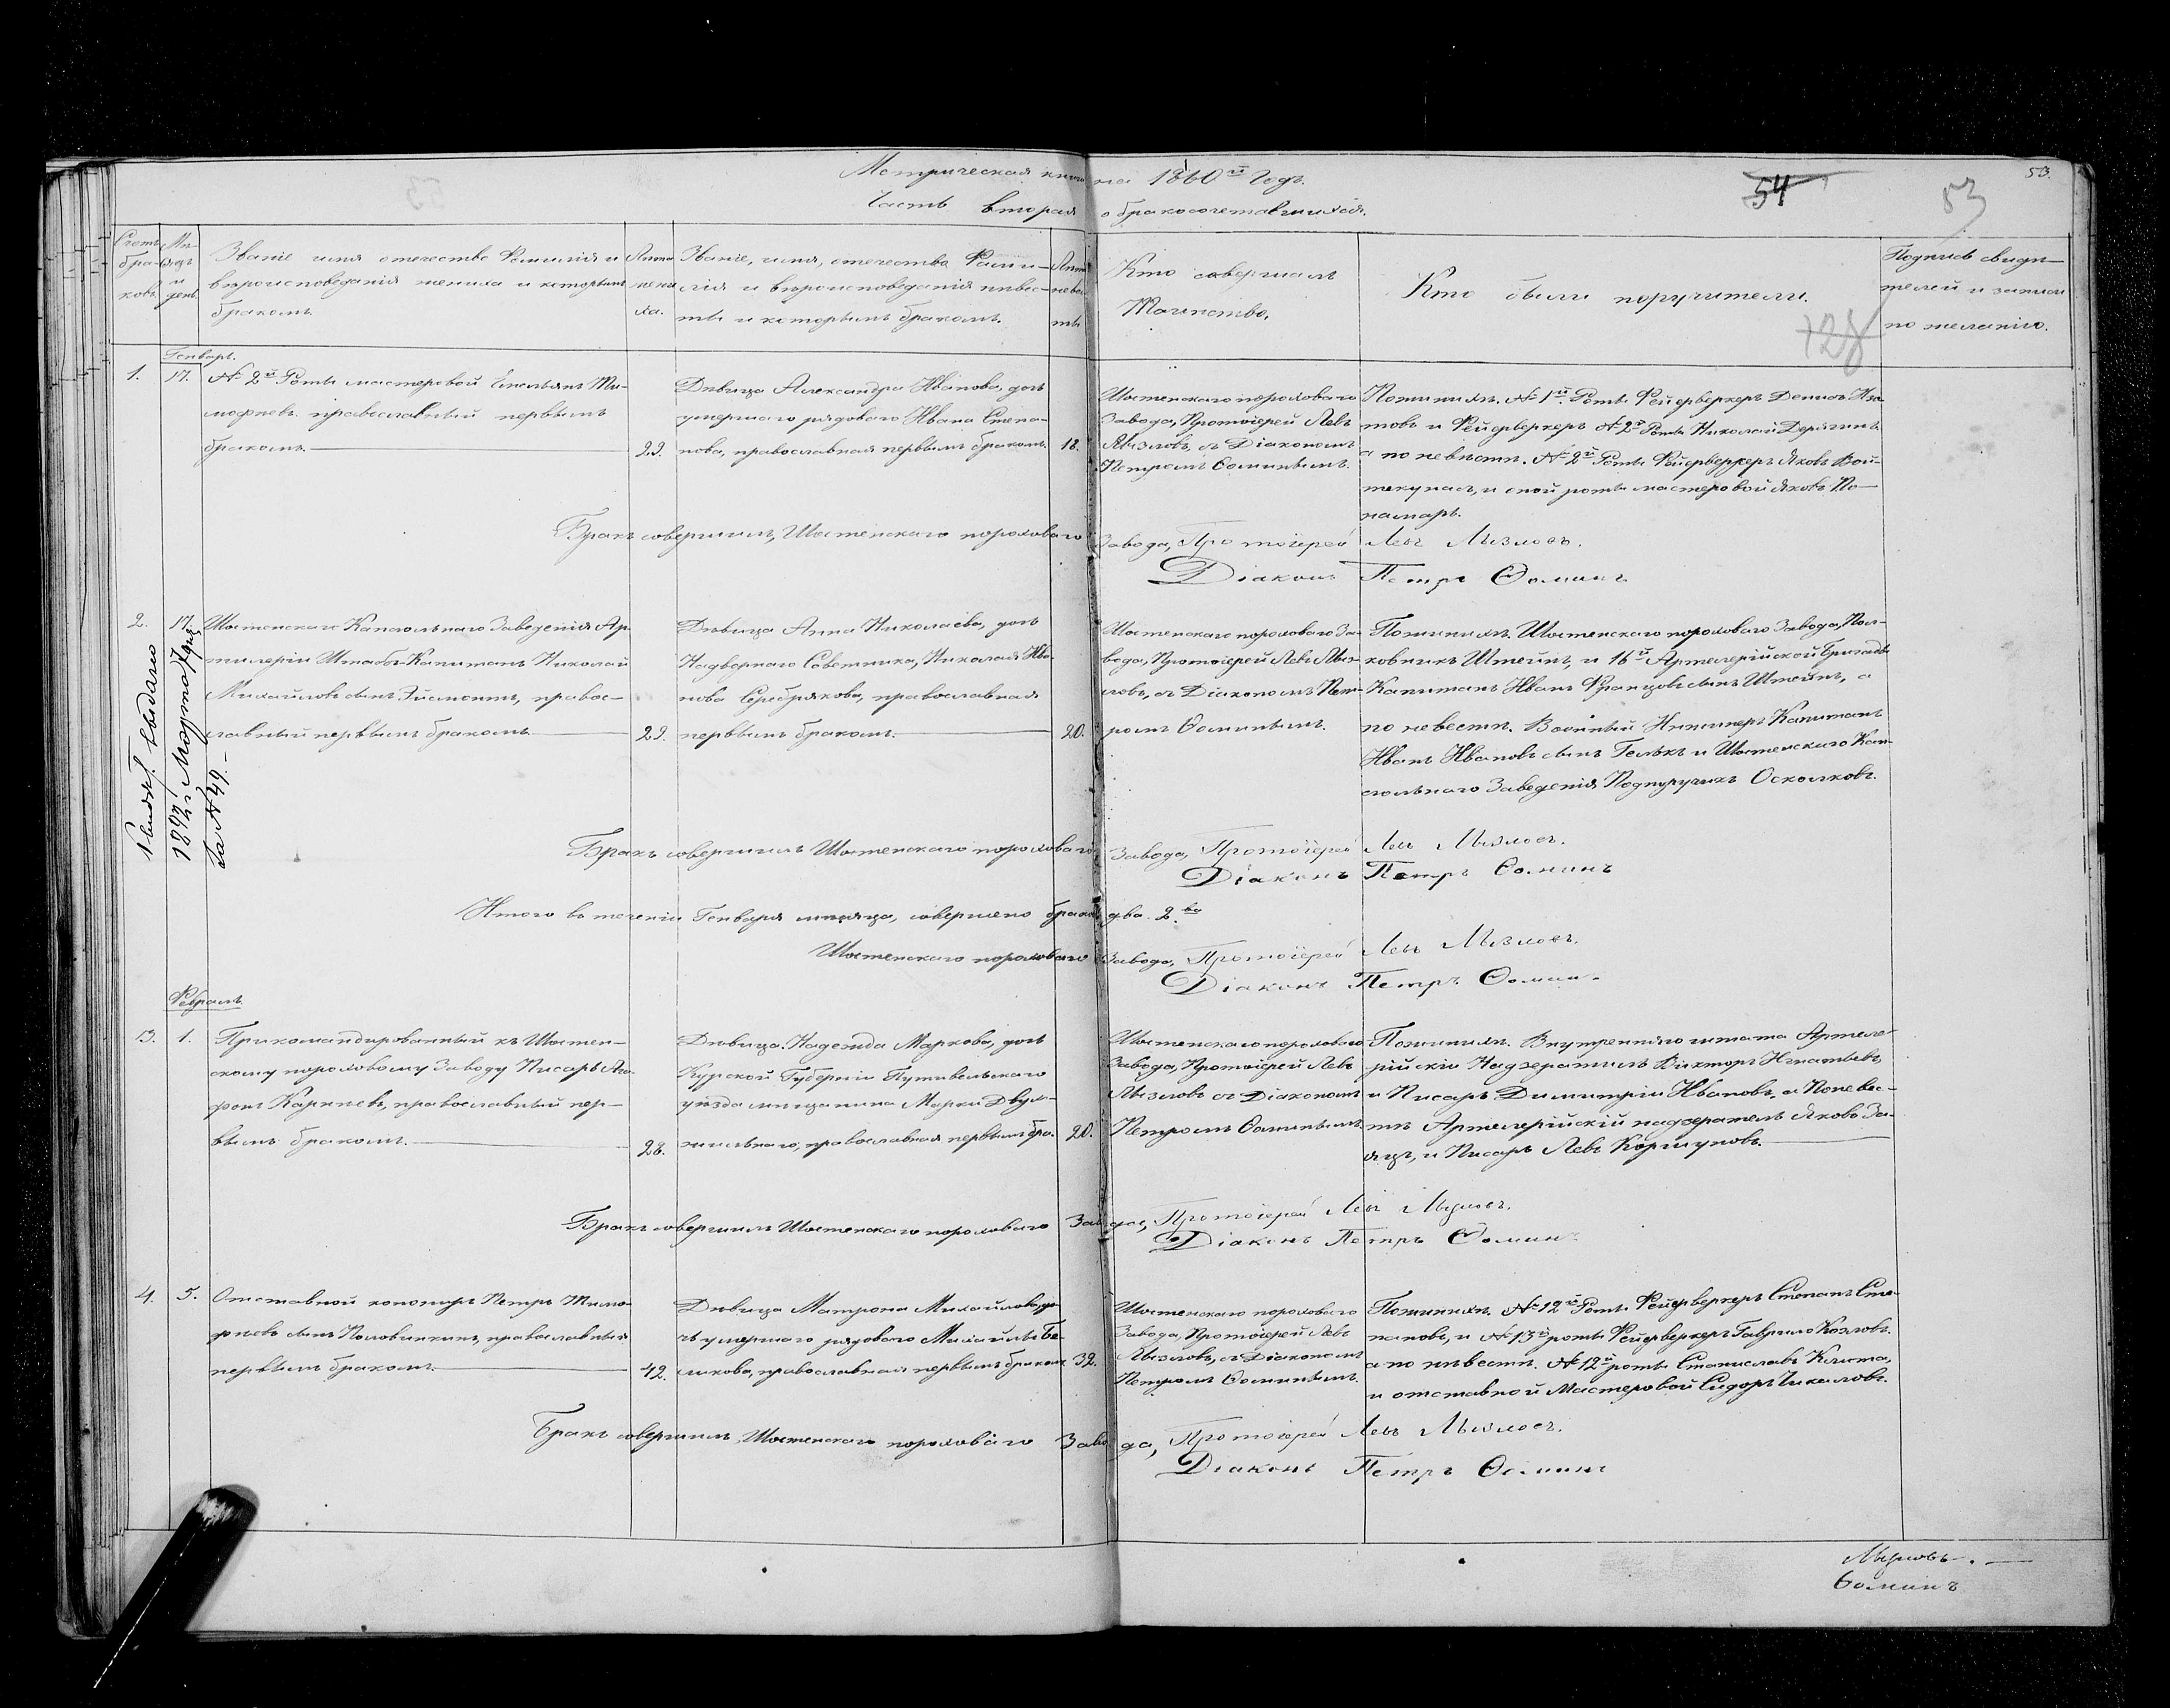 Метрическая книга на 1860й Годъ.
Часть вторая о бракосочетавшихся.
54
53
53.
Счетъ бра-ковъ.
Мѣ-сяцъ и день.
Званіе имя отечество Фамилія и
вѣроисповеданія жениха и которымъ
бракомъ.
Лѣта жени-ха.
Званіе, имя, отечество Фами-
лія и вѣроисповеданія невес-
ты и которымъ бракомъ.
Лѣта невес-ты
Кто совершалъ
Таинство.
Кто были поручители.
128
Подпись свидѣ-
телей и записи
по желанію.
Генварь.
1. 17.
№ 2й Роты мастеровой Емельянъ Ти-
мофѣевъ православный первымъ
бракомъ. 22.
Дѣвица Александра Иванова, дочь
умершаго рядоваго Ивана Степа-
нова, православная первымъ бракомъ. 18.
Шостенскаго пороховаго
Завода, Протоіерей Левъ
Мызловъ, съ Діакономъ
Петромъ Ѳоминымъ.
По женихѣ. № 1й Роты Фейерверкеръ Денисъ
товъ и Фейерверкеръ № 2й Роты Николай
а по невѣстѣ. № 2й Роты Фейерверкеръ Яковъ Вой-
и оной роты мастеровой Яковъ По-
намарь.
Бракъ совершилъ, Шостенскаго пороховаго Завода, Протоіерей Левъ Мызловъ.
Діаконъ Петръ Ѳоминъ
2. 17.
Шостенскаго Капсюльнаго Заведенія Ар-
тилеріи Штабсъ-Капитанъ Николай
Михайловъ сынъ Эйсмонтъ, правос-
лавный первымъ бракомъ. 29.
Дѣвица Анна Николаева, дочь
Надворнаго Советника, Николая Ива-
нова Серебрякова, православная
первымъ бракомъ. 20.
Шостенскаго пороховаго За-
вода, Протоіерей Левъ Мыз-
ловъ, съ Діакономъ Пет-
ромъ Ѳоминымъ.
По женихѣ. Шостенскаго пороховаго Завода, Пол-
ковникъ Штейнъ, и 16й Артелерійской Бригады
Капитанъ Иванъ Францовъ сынъ Штейнъ, а
по невестѣ. Военный Инженеръ Капитанъ
Иванъ Ивановъ сынъ Гельхъ и Шостенскаго Кап-
сюльнаго Заведенія Подпоручикъ Осколковъ.
выдано
1892 г. Марта
За № 49.
Бракъ совершилъ Шостенскаго пороховаго Завода, Протоіерей Левъ Мызловъ.
Діаконъ Петръ Ѳоминъ
Итого въ теченіи Генваря мѣсяца, совершено браковъ два. 2ва
Шостенскаго пороховаго Завода, Протоіерей Левъ Мызловъ.
Діаконъ Петръ Ѳоминъ
Февраль.
3. 1.
Прикомандированный къ Шостен-
скому пороховому Заводу Писарь Ага-
фонъ Карпѣевъ, православный пер-
вымъ бракомъ. 28.
Дѣвица Надежда Маркова, дочь
Курской Губерніи Путивельскаго
уѣзда мѣщанина Марки Двуж-
жильнаго, православная первымъ бра. 20.
Шостенскаго пороховаго
Завода, Протоіерей Левъ
Мызловъ съ Діакономъ
Петромъ Ѳоминымъ.
По женихѣ. Внутренняго штата Артеле-
рійскіи Надзератель Викторъ Игнатьевъ
и Писарь Димитріи Ивановъ, а По невес-
тѣ Артелерійскій надзератель Яковъ За-
яцъ, и Писарь Левъ Коршуновъ.
Бракъ совершилъ Шостенскаго пороховаго Завода, Протоіерей Левъ Мызловъ.
Діаконъ Петръ Ѳоминъ
4. 5.
Отставной конониръ Петръ Тимо-
фѣевъ сынъ Половинкинъ, православный
первымъ бракомъ. 42.
Дѣвица Матрона Михайлова, до-
чь умершаго рядоваго Михайлы Бе-
ликова, православная первымъ бракомъ 32.
Шостенскаго пороховаго
Завода, Протоіерей Левъ
Мызловъ, съ Діакономъ
Петромъ Ѳоминымъ.
По женихѣ. № 12й Роты Фейерверкеръ Степанъ Сте-
пановъ, и № 13й роты Фейерверкеръ Гаврило Козловъ.
а по нѣвестѣ. № 12й роты Станиславъ
и отставной Мастеровой Сидоръ Чикаловъ.
Бракъ совершилъ, Шостенскаго пороховаго Завода, Протоіерей Левъ Мызловъ.
Діаконъ Петръ Ѳоминъ
Мызловъ.
Ѳоминъ